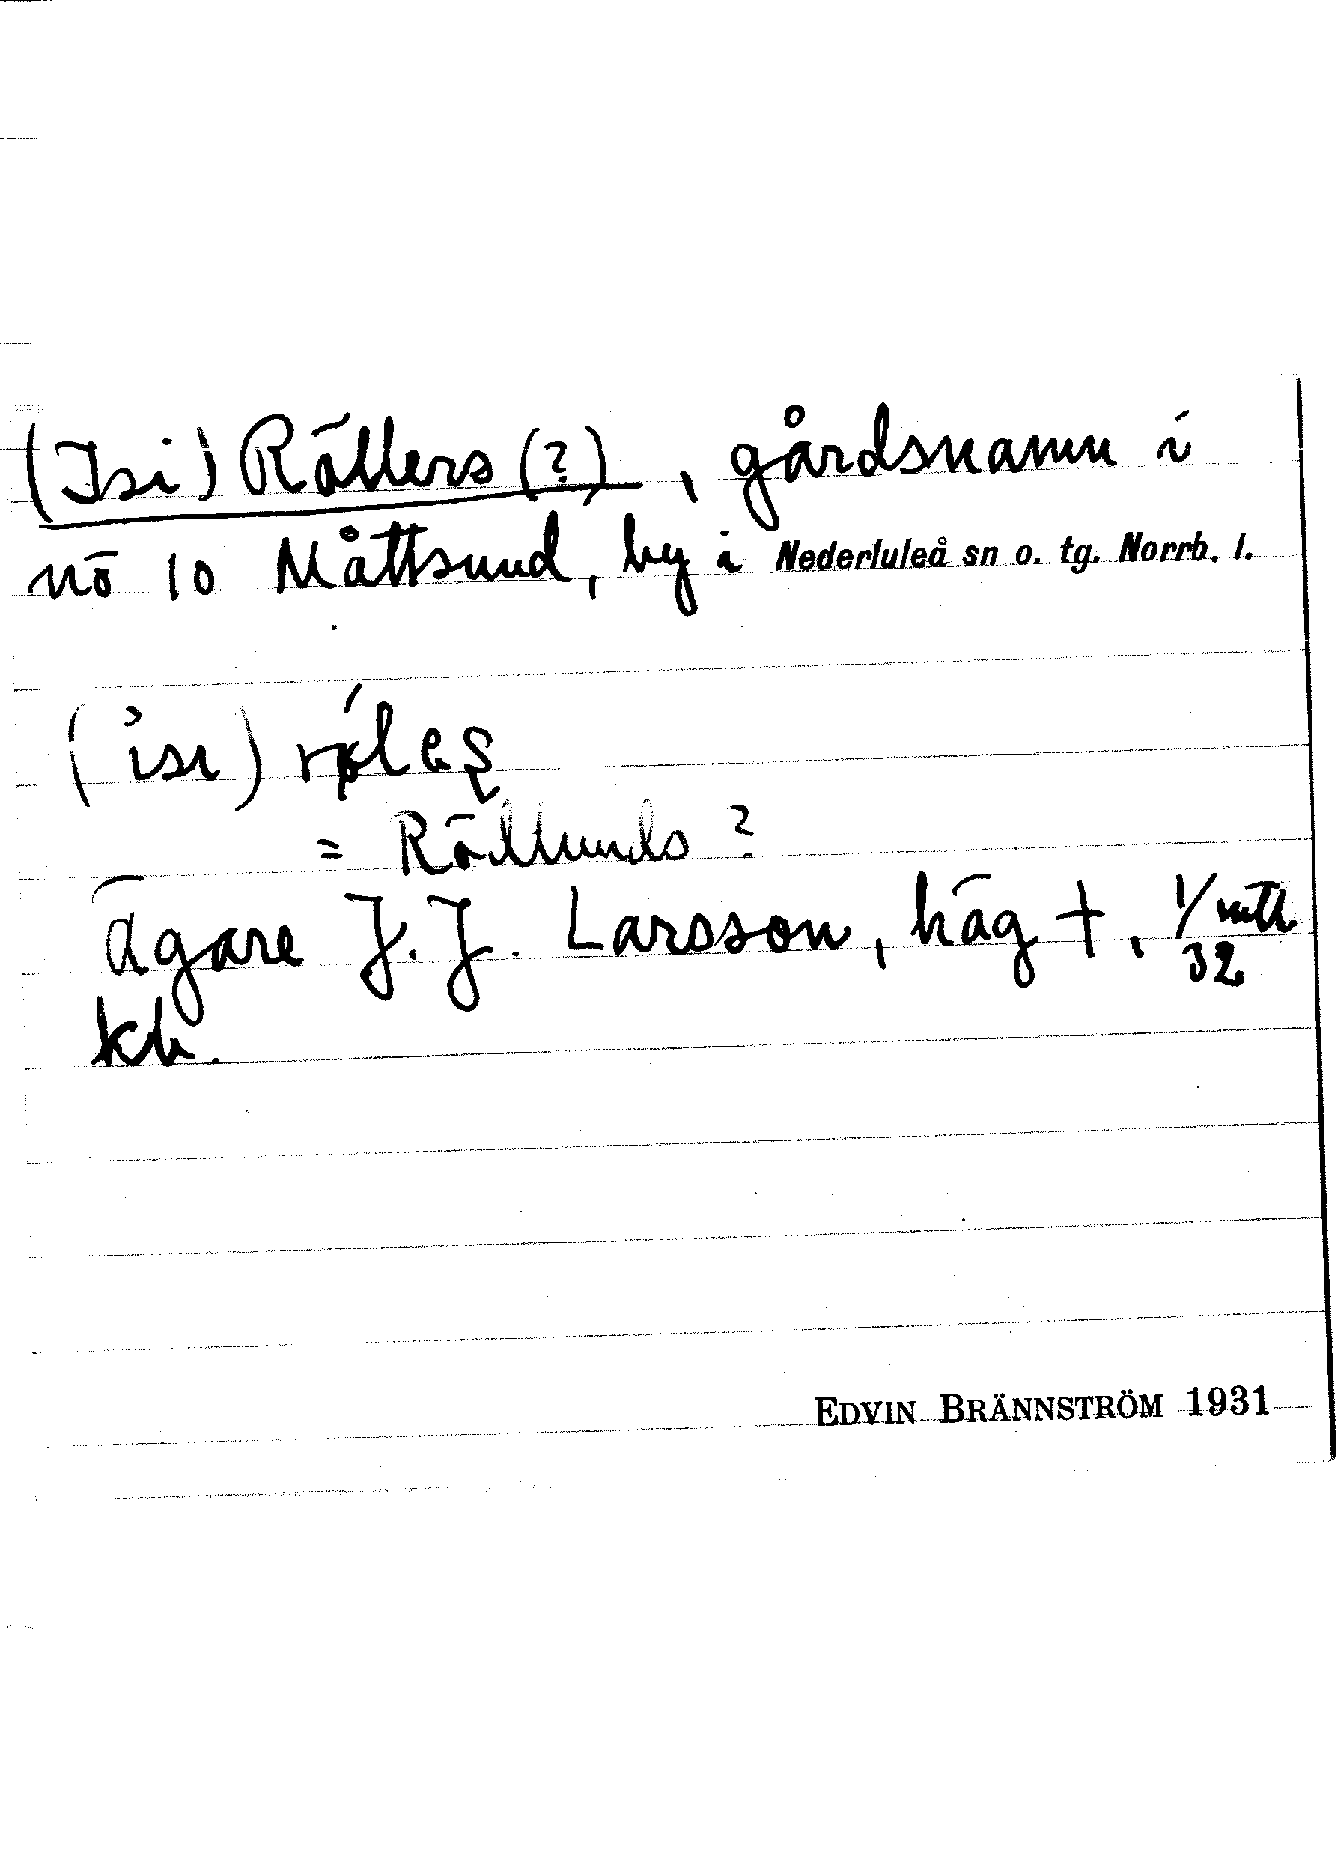 (Isi) Röllers (?), gårdsnamn i
nö 10 Måttsund, by i Nederluleå sn o. tg. Norrb. l.
(isi)
= Rödlunds ?
Ägare J. J. Larsson, häg +, 1/32 mtl
kh.
EDVIN BRÄNNSTRÖM 1931